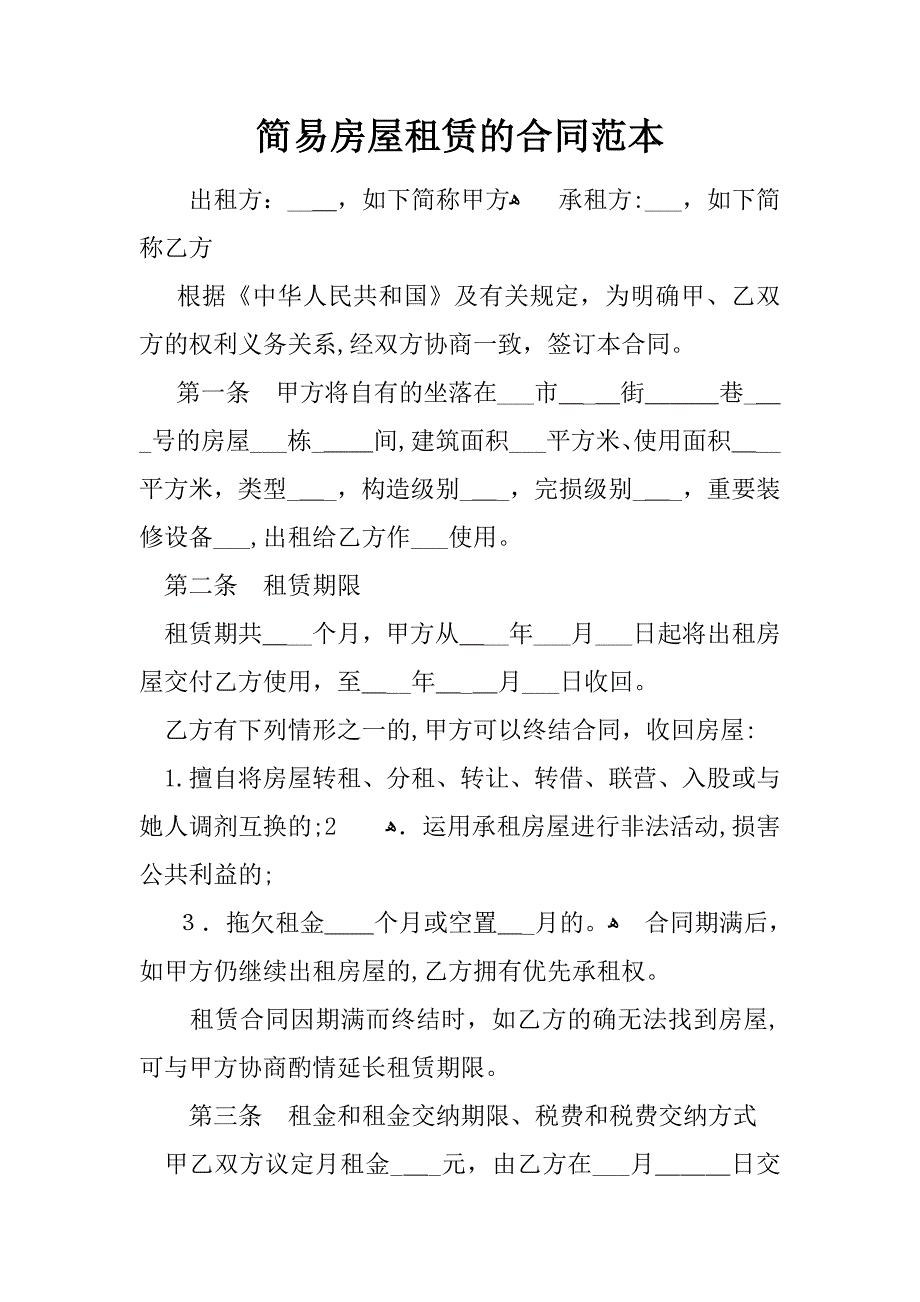 简易房屋租赁的合同范本
出租方：____，如下简称甲方ﻫ 承租方:___，如下简
称乙方
根据《中华人民共和国》及有关规定，为明确甲、乙双
方的权利义务关系,经双方协商一致，签订本合同。
第一条　甲方将自有的坐落在___市_____街______巷___
_号的房屋___栋_____间,建筑面积___平方米、使用面积____
平方米，类型____，构造级别____，完损级别____，重要装
修设备___,出租给乙方作___使用。
第二条　租赁期限
租赁期共____个月，甲方从____年___月___日起将出租房
屋交付乙方使用，至____年_____月___日收回。
乙方有下列情形之一的,甲方可以终结合同，收回房屋:
1.擅自将房屋转租、分租、转让、转借、联营、入股或与
她人调剂互换的;2 ﻫ．运用承租房屋进行非法活动,损害
公共利益的;
３．拖欠租金____个月或空置___月的。ﻫ 合同期满后，
如甲方仍继续出租房屋的,乙方拥有优先承租权。
租赁合同因期满而终结时，如乙方的确无法找到房屋,
可与甲方协商酌情延长租赁期限。
第三条　租金和租金交纳期限、税费和税费交纳方式
甲乙双方议定月租金____元，由乙方在___月______日交